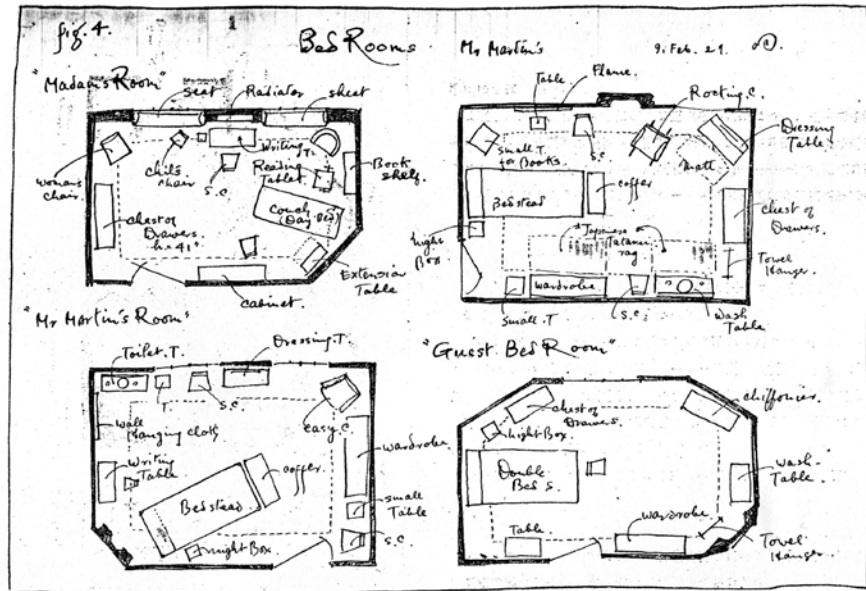 fig. 4.
Bed Rooms
Mr Martin's
9. Feb. 29.
"Madam's Room"
seat
Radiator
sheet
woman's
chair.
chil's
chair
S.C
Writing
T.
Reading
Table
Book
shelf.
Couch
(Day-Bed)
chest of
Drawers
h=41"
cabinet.
Extension
Table
Table
Flame.
Rocking. C.
Dressing
Table.
small T
for Books.
S.C
matt
Bedstead
coffer
chest of
Drawers.
night
Box
"Japanese
Tatami"
rag
Towel
Hanger.
small. T
wardrobe
S.C.
wash
Table
"Mr Martin's Room"
Toilet. T.
Dressing. T.
T.
S.C.
easy. C
wall
hanging cloth
Writing
Table
wardrobe
Bedstead
coffer
small
Table
night Box
S.C.
"Guest Bed Room"
chest of
Drawers.
chiffonier.
night Box.
Double
Bed S.
wash-
Table.
Table.
wardrobe
Towel
Hanger.